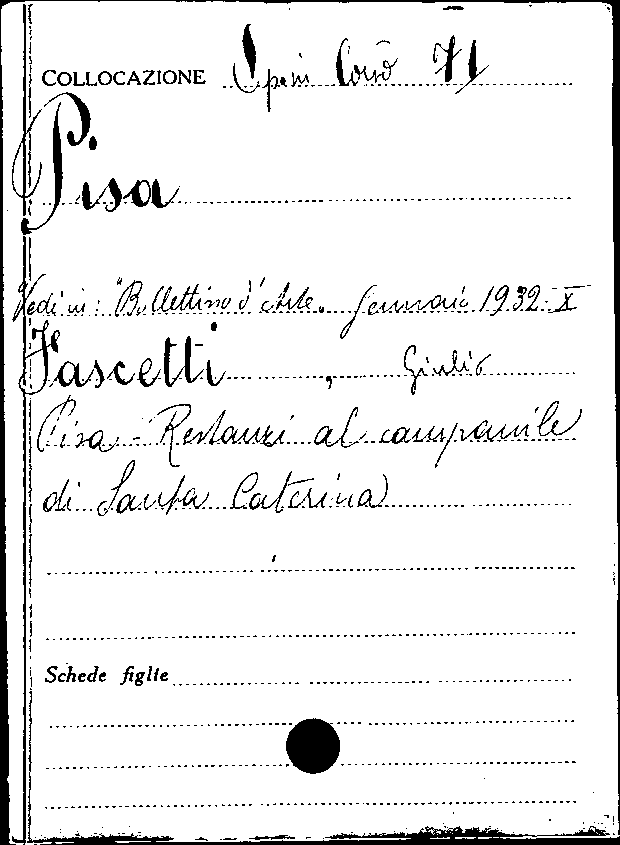 COLLOCAZIONE 71
Pisa
Vedi in: "Bollettino d'Arte" Gennaio 1932-X
Fascetti, Giulio
Pisa - Restauri al campanile
di Santa Caterina
Schede figlie